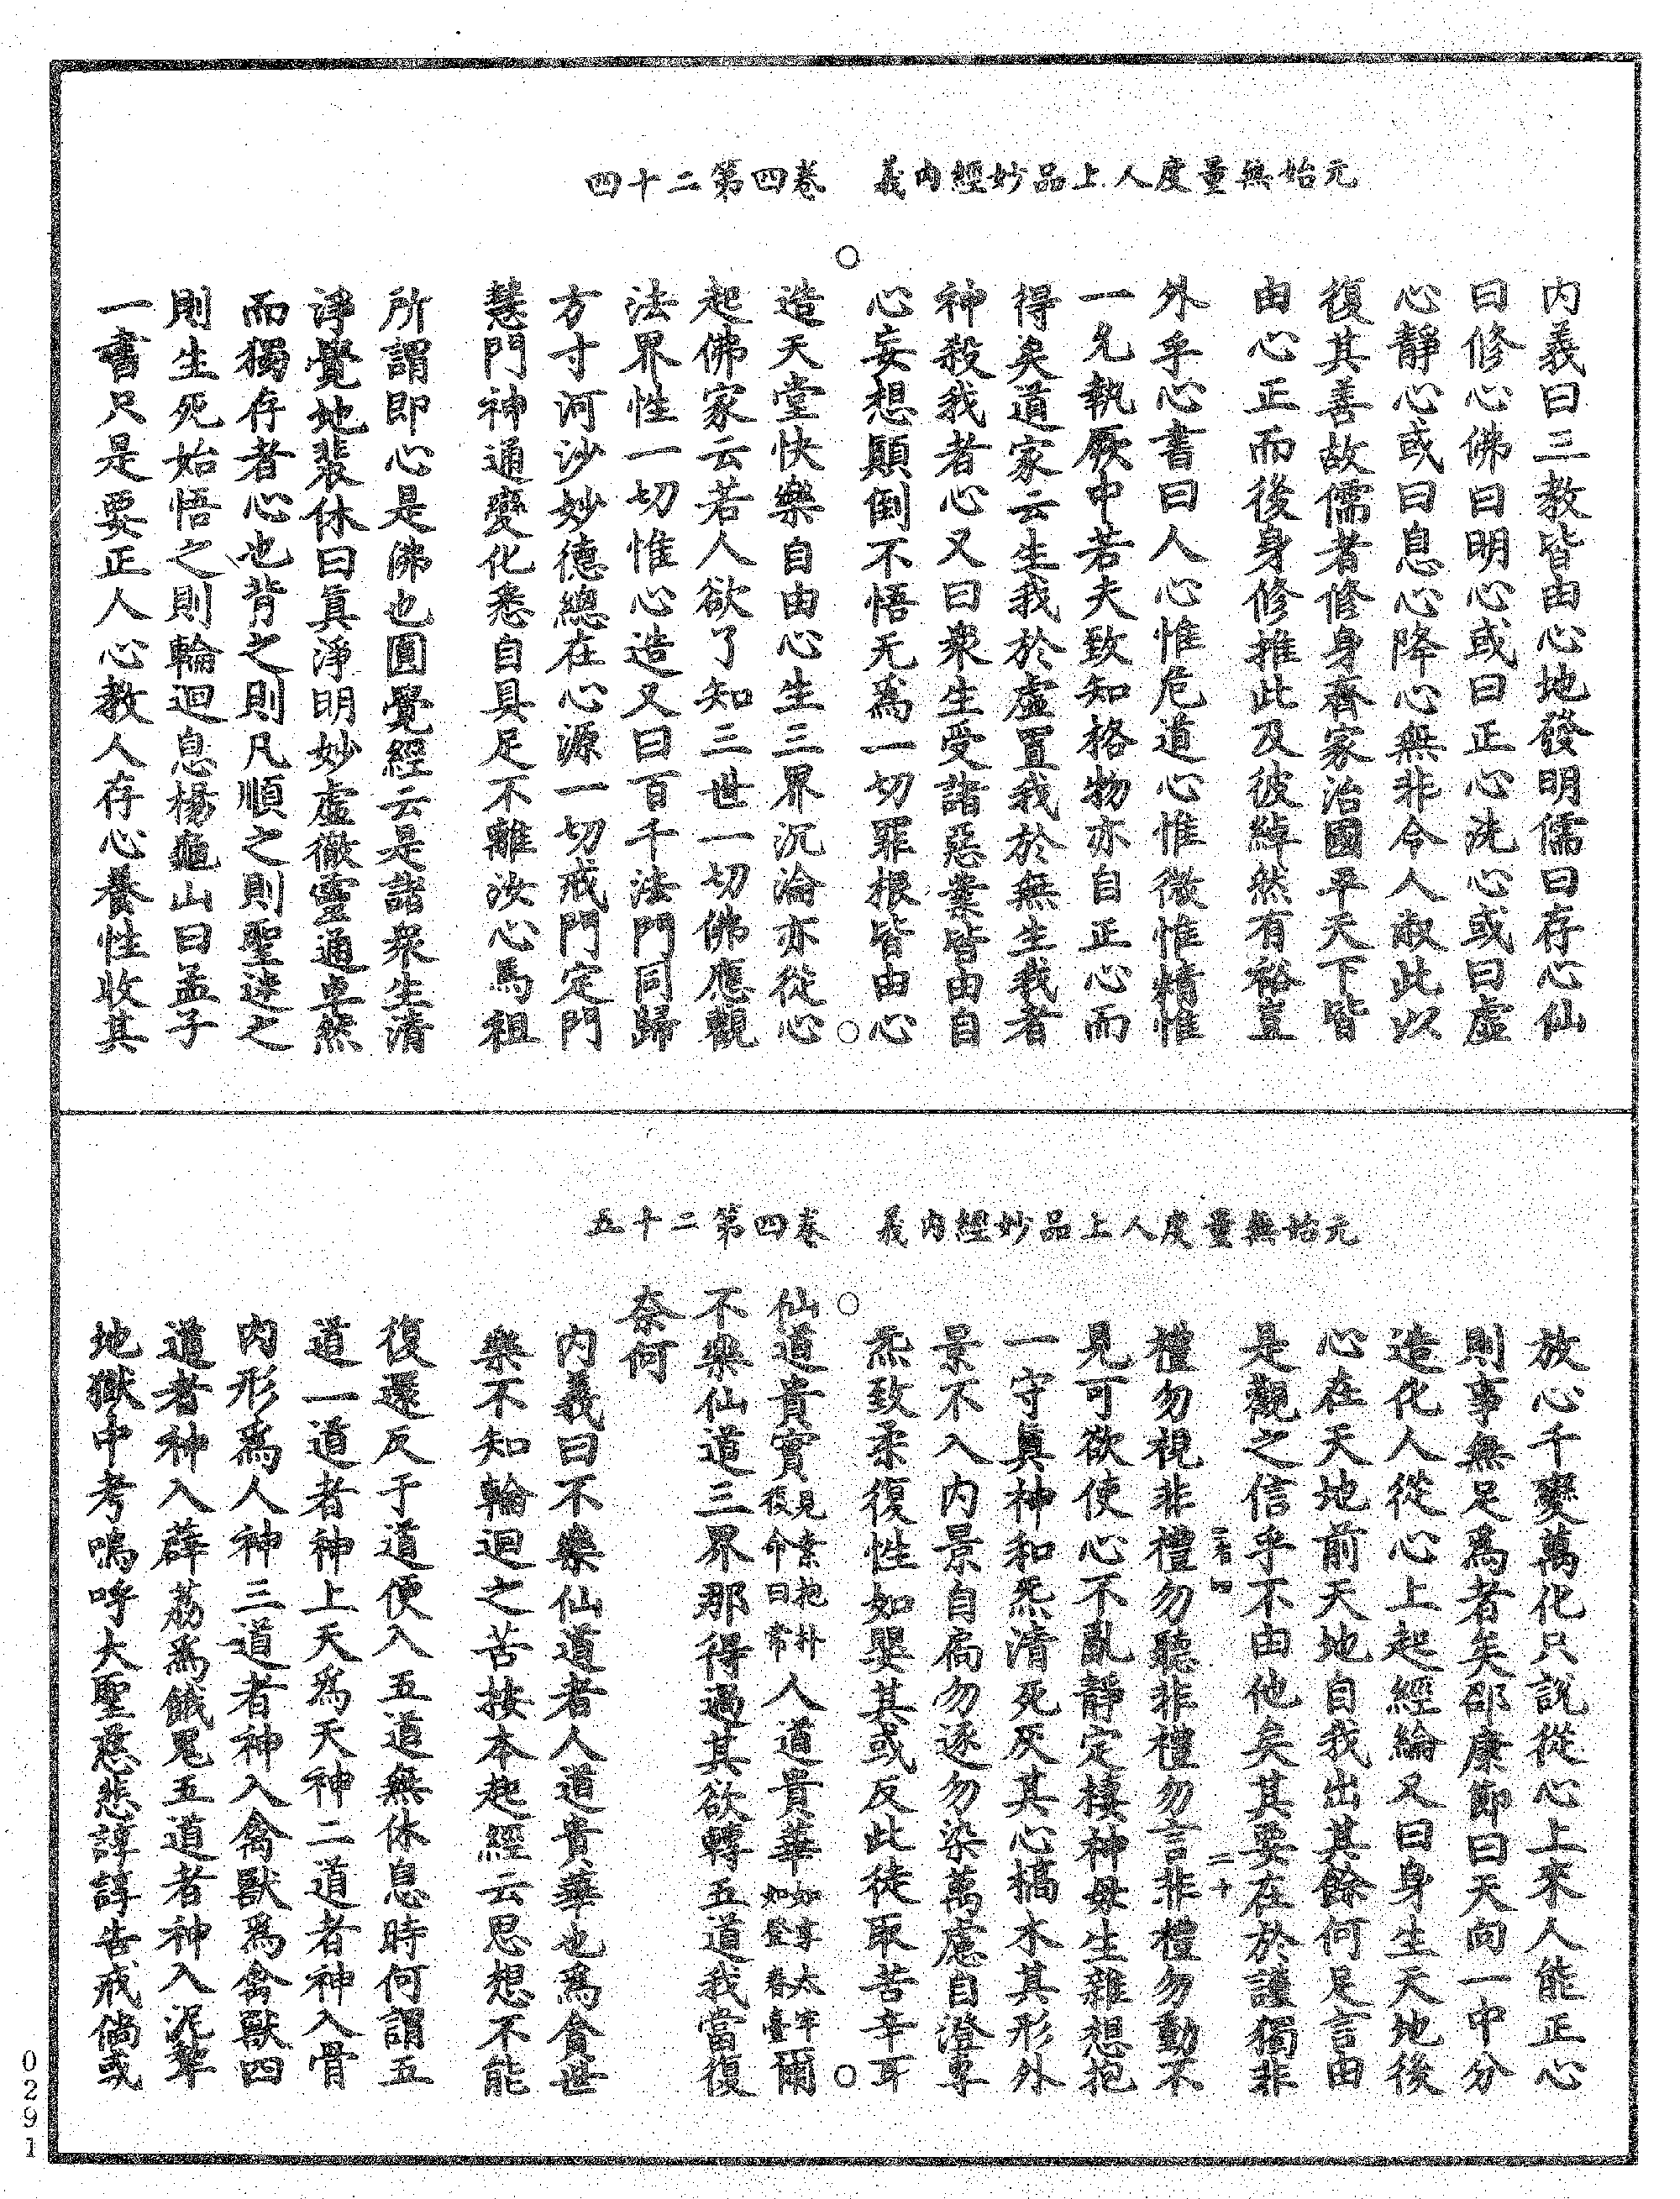 元始無量度人上品妙經內義　卷四第二十四
內義曰三教皆由心地發明儒曰存心仙
曰修心佛曰明心或曰正心洗心或曰虛
心靜心或曰息心降心無非令人㪽此以
復其善故儒者修身齊家治國平天下皆
由心正而後身修推此及彼綽然有裕豈
外乎心書曰人心惟危道心惟微惟精惟
一允執厥中若夫致知格物亦自正心而
得矣道家云生我於虛置我於無生我者
神殺我者心又曰衆生受諸惡業皆由自
心妄想顛倒不悟无爲一切罪根皆由心
造天堂快樂自由心生三界沉淪亦從心
起佛家云若人欲了知三世一切佛應觀
法界性一切惟心造又曰百千法門同歸
方寸河沙妙德總在心源一切戒門定門
慧門神通變化悉自具足不離汝心馬祖
所謂即心是佛也圓覺經云是諸衆生清
淨覺地裴休曰眞淨明妙虛徹靈通卓然
而獨存者心也背之則凡順之則聖迷之
則生死始悟之則輪迴息楊龜山曰孟子
一書只是要正人心教人存心養性收其
元始無量度人上品妙經內義　卷四第二十五
放心千變萬化只說從心上來人能正心
則事無足爲者矣邵康節曰天向一中分
造化人從心上起經綸又曰身生天地後
心在天地前天地自我出其餘何足言由
是觀之信乎不由他矣其要在於謹獨非
禮勿視非禮勿聽非禮勿言非禮勿動不
見可欲使心不亂靜定棲神毋生雜想抱
一守眞神和炁清死灰其心槁木其形外
景不入內景自扃勿逐勿染萬慮自澄專
炁致柔復性如嬰其或反此徒取苦辛耳
仙道貴實見素抱朴復命曰常人道貴華如享太牢如登春臺爾
不樂仙道三界那得過其欲轉五道我當復
奈何
內義曰不樂仙道者人道貴華也爲貪世
樂不知輪迴之苦按本起經云思想不能
復還反于道便入五道無休息時何謂五
道一道者神上天爲天神二道者神入骨
肉形爲人神三道者神入禽獸爲禽獸四
道者神入薜荔爲餓鬼五道者神入泥犂
地獄中考嗚呼大聖慈悲諄諄告戒倘或
0291